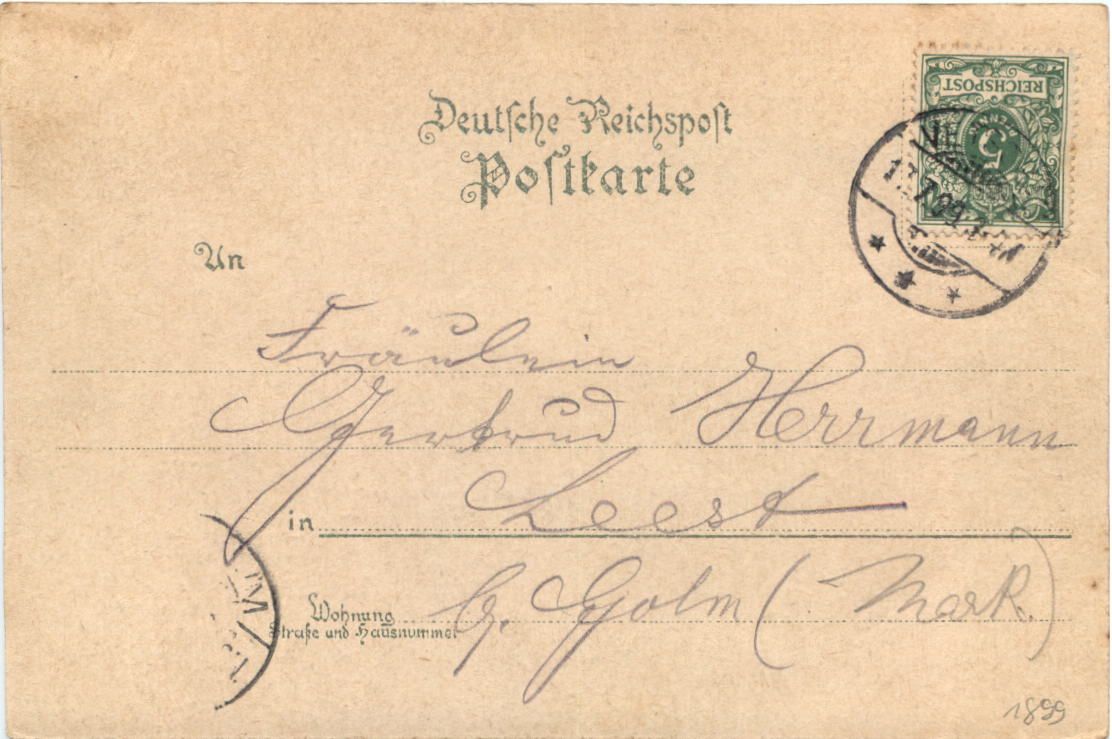 Deutsche Reichspost
Postkarte
REICHSPOST
5
PFENNIG
An
Fräulein
Gertrud Herrmann
in Leest
b. Golm (Mark)
Wohnung
Straße und Hausnummer
1899